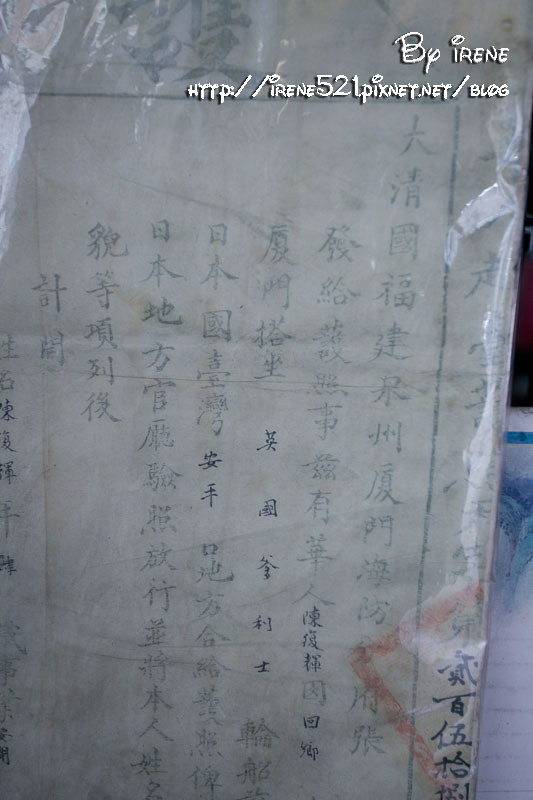 By irene
http://irene521.pixnet.net/blog
護
貳百伍拾捌
大清國福建泉州厦門海防分府張
發給護照事茲有華人陳復輝因回鄉
厦門搭坐 英國爹利士 輪船
日本國臺灣安平口地方合給護照俾
日本地方官廳驗照放行並將本人姓名
貌等項列後
計開
姓名陳復輝年